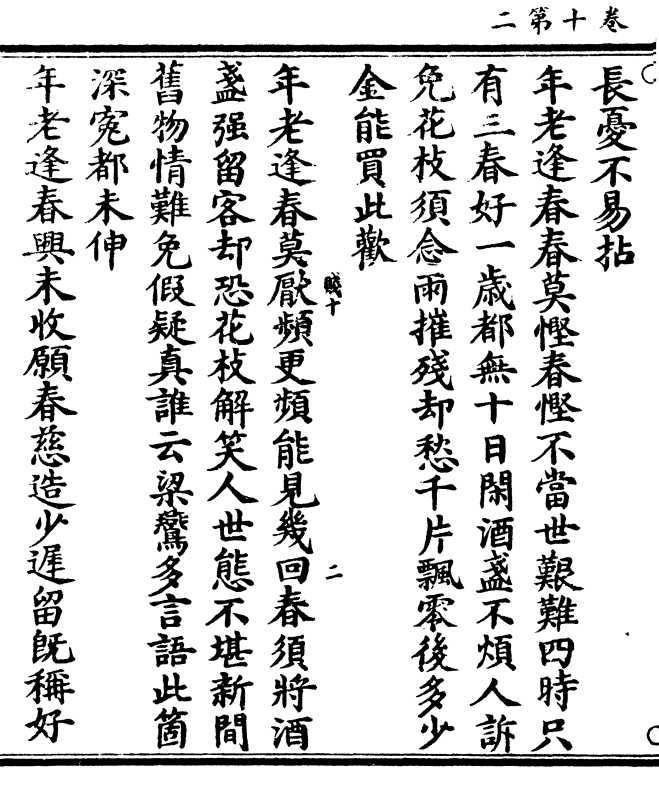 卷十第二
長憂不易拈
年老逢春春莫慳春慳不當世艱難四時只
有三春好一歲都無十日閑酒盞不煩人訴
免花枝須念雨摧殘却愁千片飄零後多少
金能買此歡
賤十 二
年老逢春莫厭頻更頻能見幾回春須將酒
盞强留客却恐花枝解笑人世態不堪新間
舊物情難免假疑真誰云梁鷰多言語此箇
深寃都未伸
年老逢春興未收願春慈造少遲留既稱好